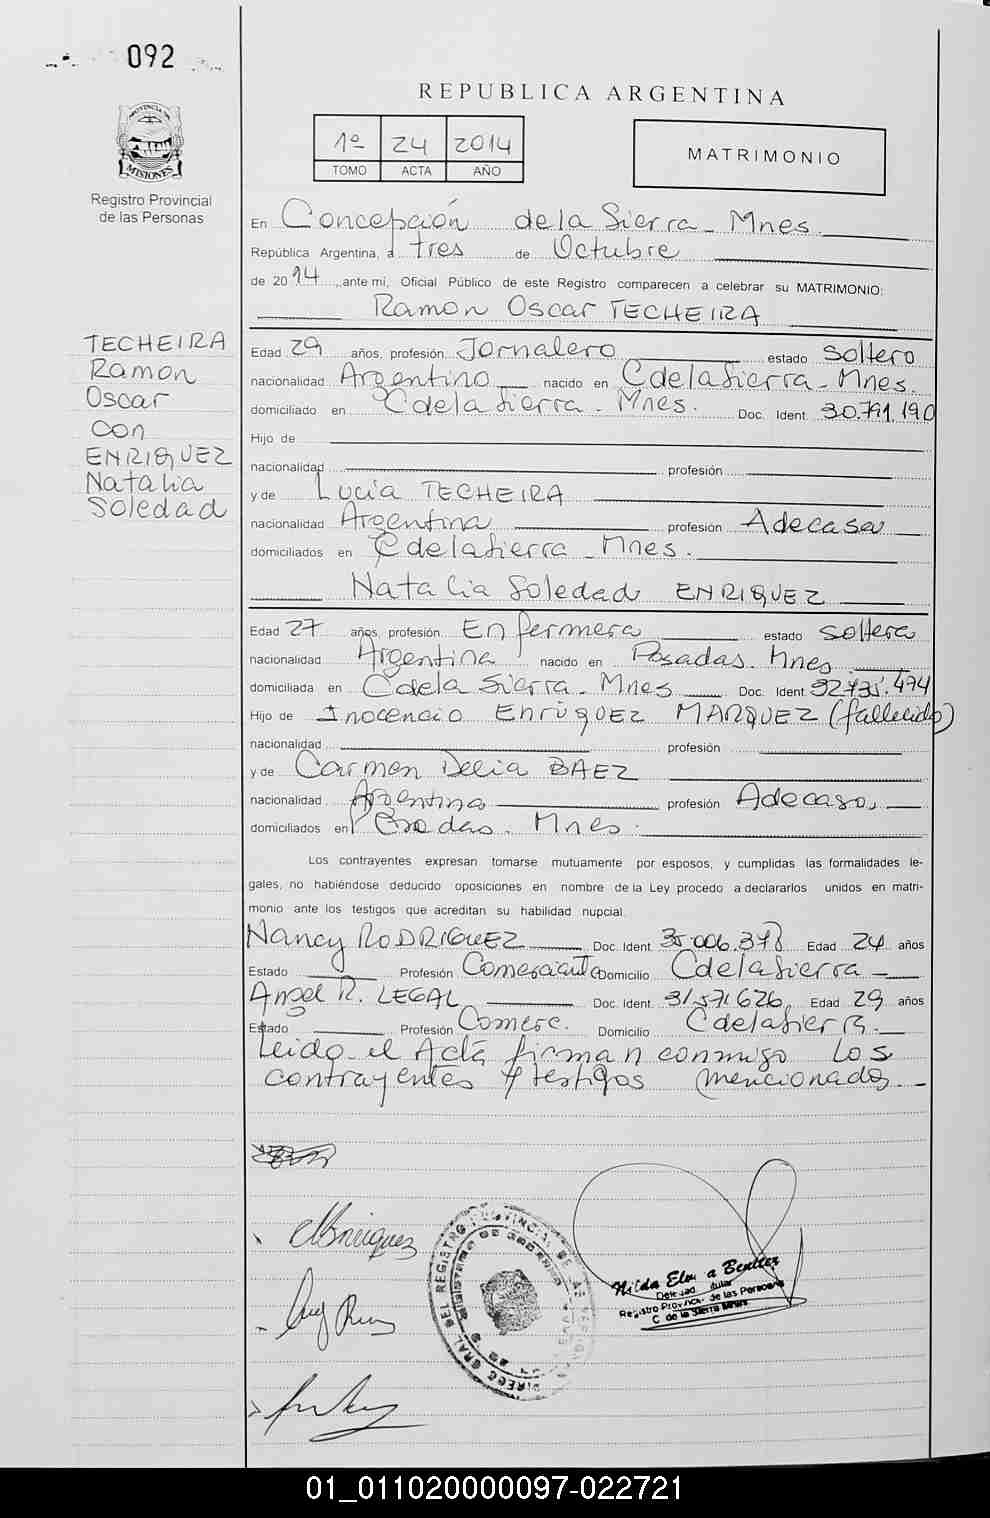 092
PROVINCIA DE
MISIONES
Registro Provincial
de las Personas
REPUBLICA ARGENTINA
1º 24 2014
TOMO ACTA AÑO
MATRIMONIO
En Concepción de la Sierra - Mnes.
República Argentina, a tres de Octubre
de 2014 ante mí, Oficial Público de este Registro comparecen a celebrar su MATRIMONIO:
Ramon Oscar TECHEIRA
TECHEIRA
Ramon
Oscar
con
ENRIQUEZ
Natalia
Soledad
Edad 29 años, profesión Jornalero estado soltero
nacionalidad Argentino nacido en C de la Sierra - Mnes.
domiciliado en C de la Sierra - Mnes. Doc. Ident. 30.791.190
Hijo de
nacionalidad profesión
y de Lucia TECHEIRA
nacionalidad Argentina profesión Ade casa
domiciliados en C de la Sierra - Mnes.
Natalia Soledad ENRIQUEZ
Edad 27 años, profesión Enfermera estado soltera
nacionalidad Argentina nacido en Posadas. Mnes
domiciliada en C de la Sierra - Mnes Doc. Ident.
Hijo de Inocencio ENRIQUEZ MARQUEZ (fallecido)
nacionalidad profesión
y de Carmen Delia BAEZ
nacionalidad Argentina profesión Ade casa,
domiciliados en Posadas. Mnes.
Los contrayentes expresan tomarse mutuamente por esposos, y cumplidas las formalidades le-
gales, no habiéndose deducido oposiciones en nombre de la Ley procedo a declararlos unidos en matri-
monio ante los testigos que acreditan su habilidad nupcial.
Nancy RODRIGUEZ Doc. Ident. 35.006.378 Edad 24 años
Estado Profesión Comerciante Domicilio C de la Sierra
Angel R. LEGAL Doc. Ident. 31.571.626 Edad 29 años
Estado Profesión Comerc. Domicilio C de la Sierra.
Leido el Acta firman conmigo los
contrayentes y testigos mencionados.
Enriquez
DIRECC. GRAL DEL REGISTRO PROVINCIAL DE LAS PERSONAS
Nilda Elvira Benitez
Delegada Titular
Registro Provincial de las Personas
C. de la Sierra Mnes
01_011020000097-022721